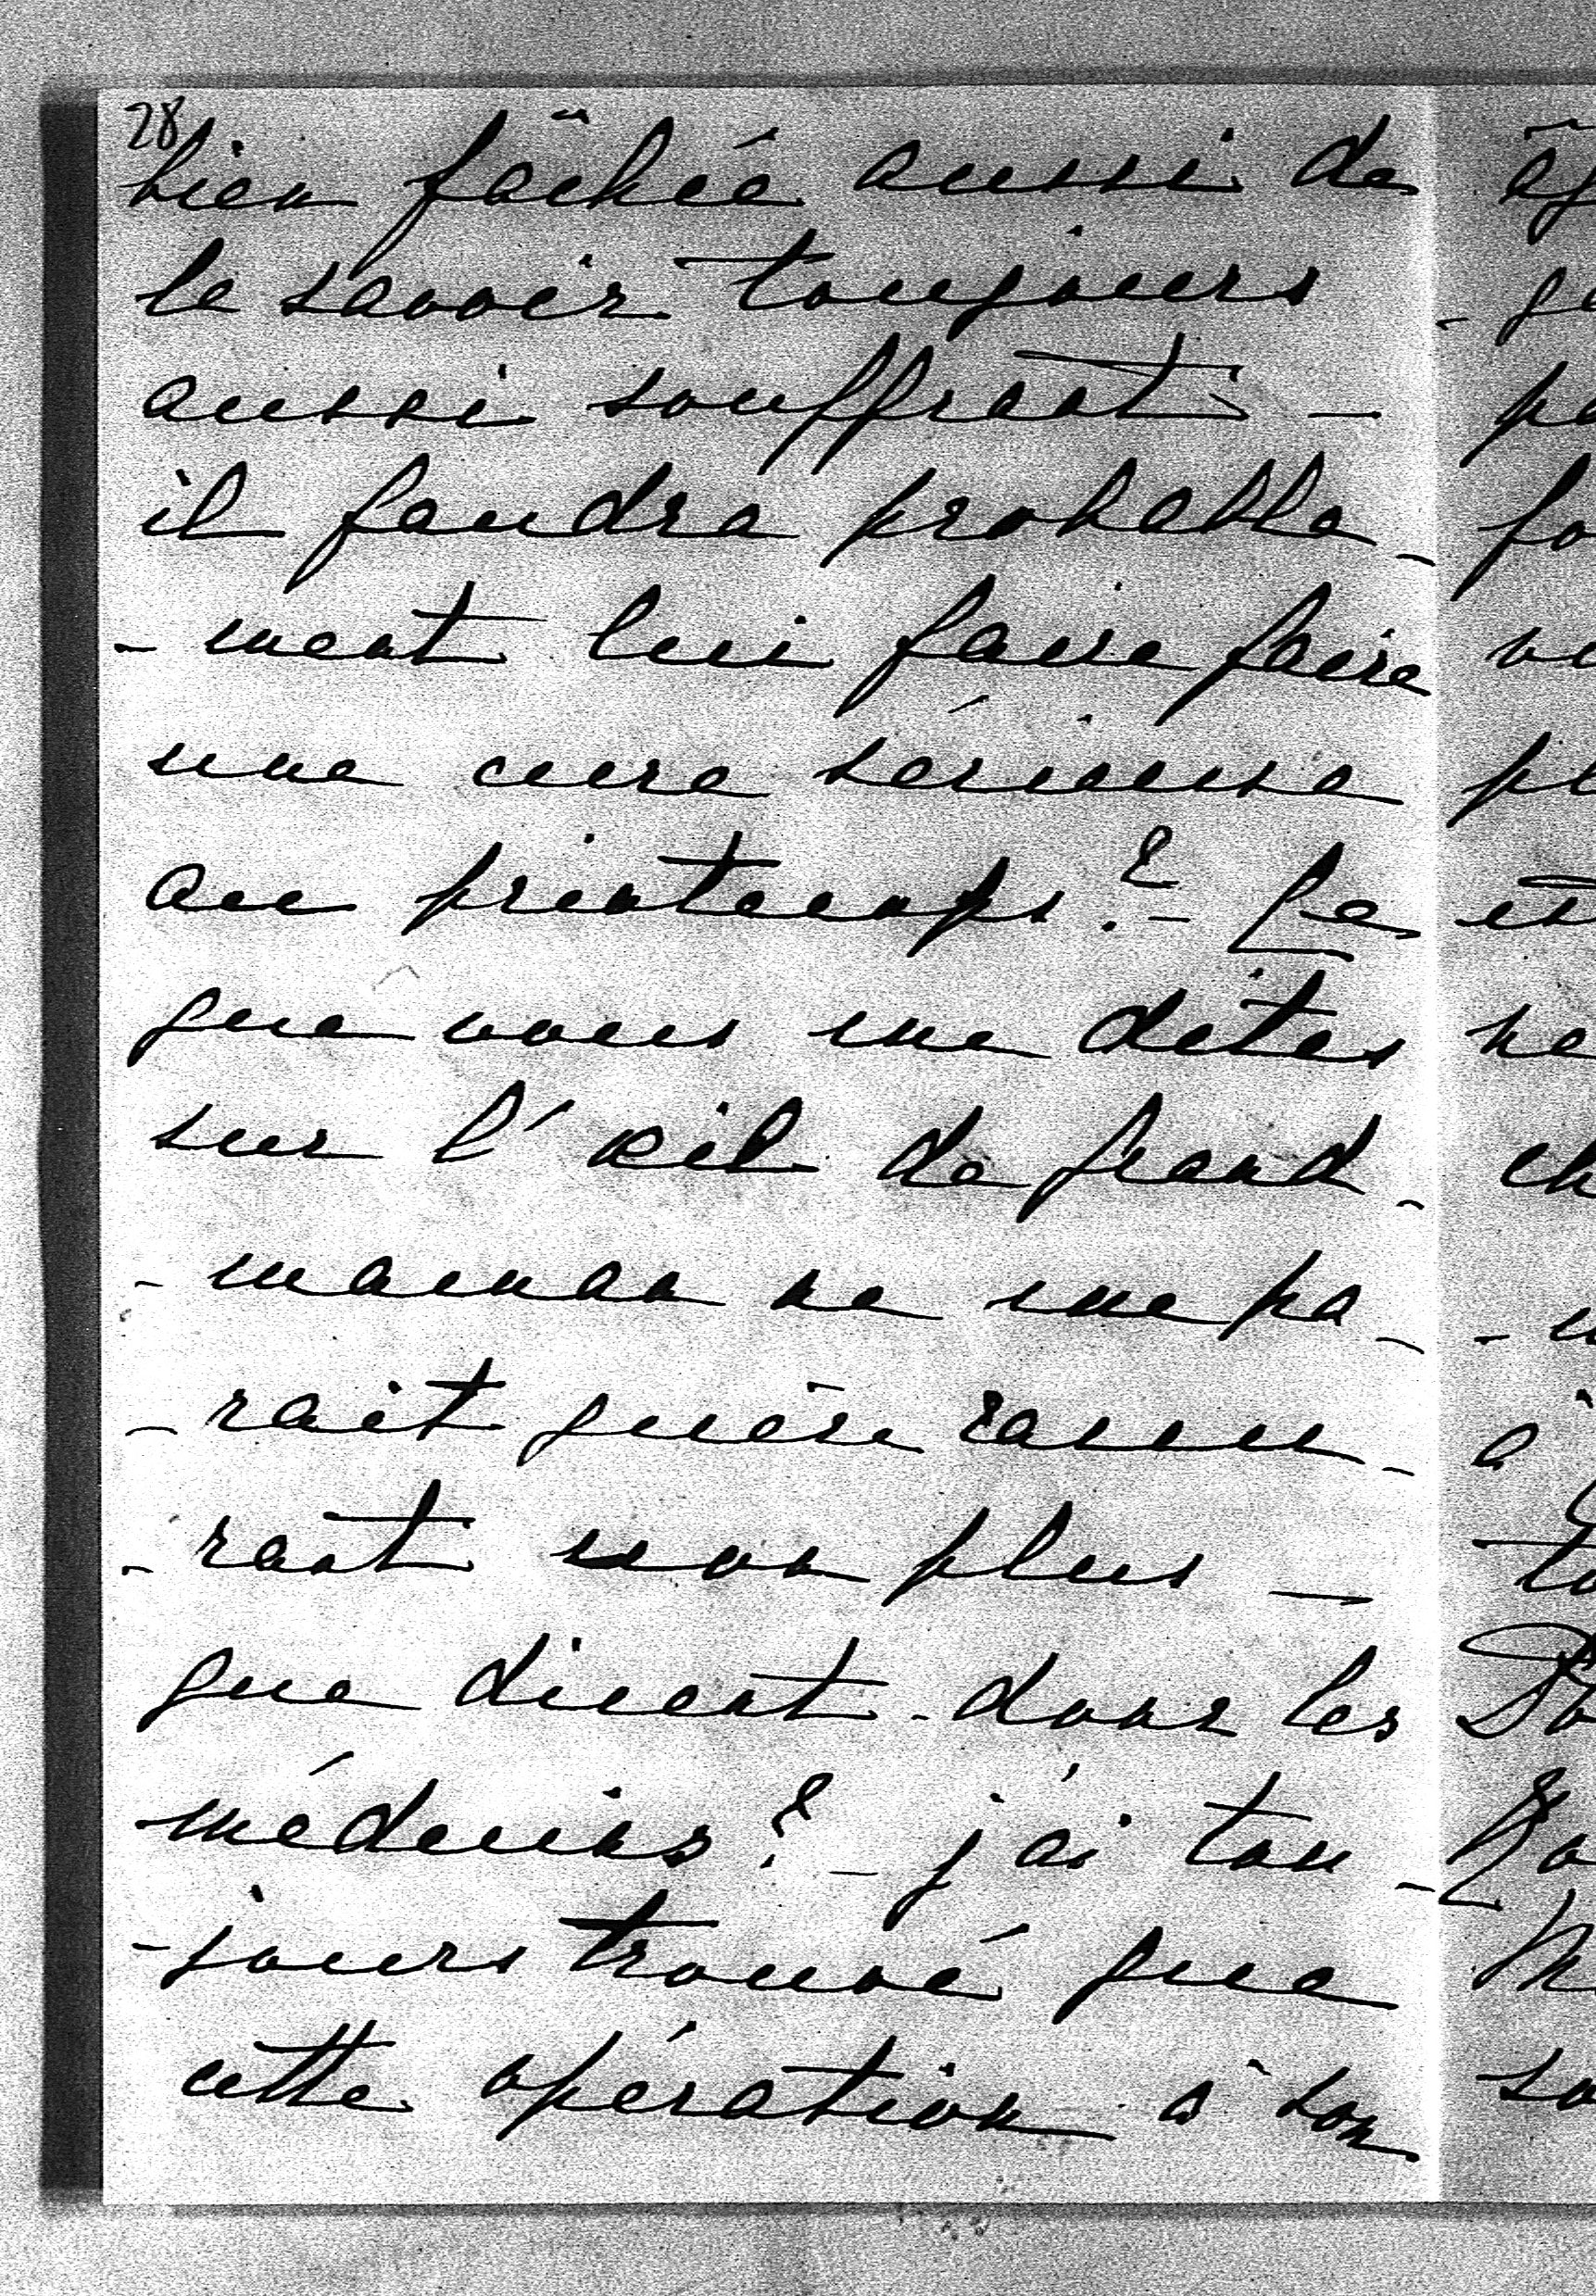 28
bien fâchée aussi de
le savoir toujours
aussi souffrant —
il faudra probable-
-ment lui faire faire
une cure sérieuse
au printemps? — Ce
que vous me dites
sur l'œil de grand-
-maman ne me pa-
-rait guère rassu-
-rant non plus —
que disent donc les
médecins? — j'ai tou-
-jours trouvé que
cette opération à son